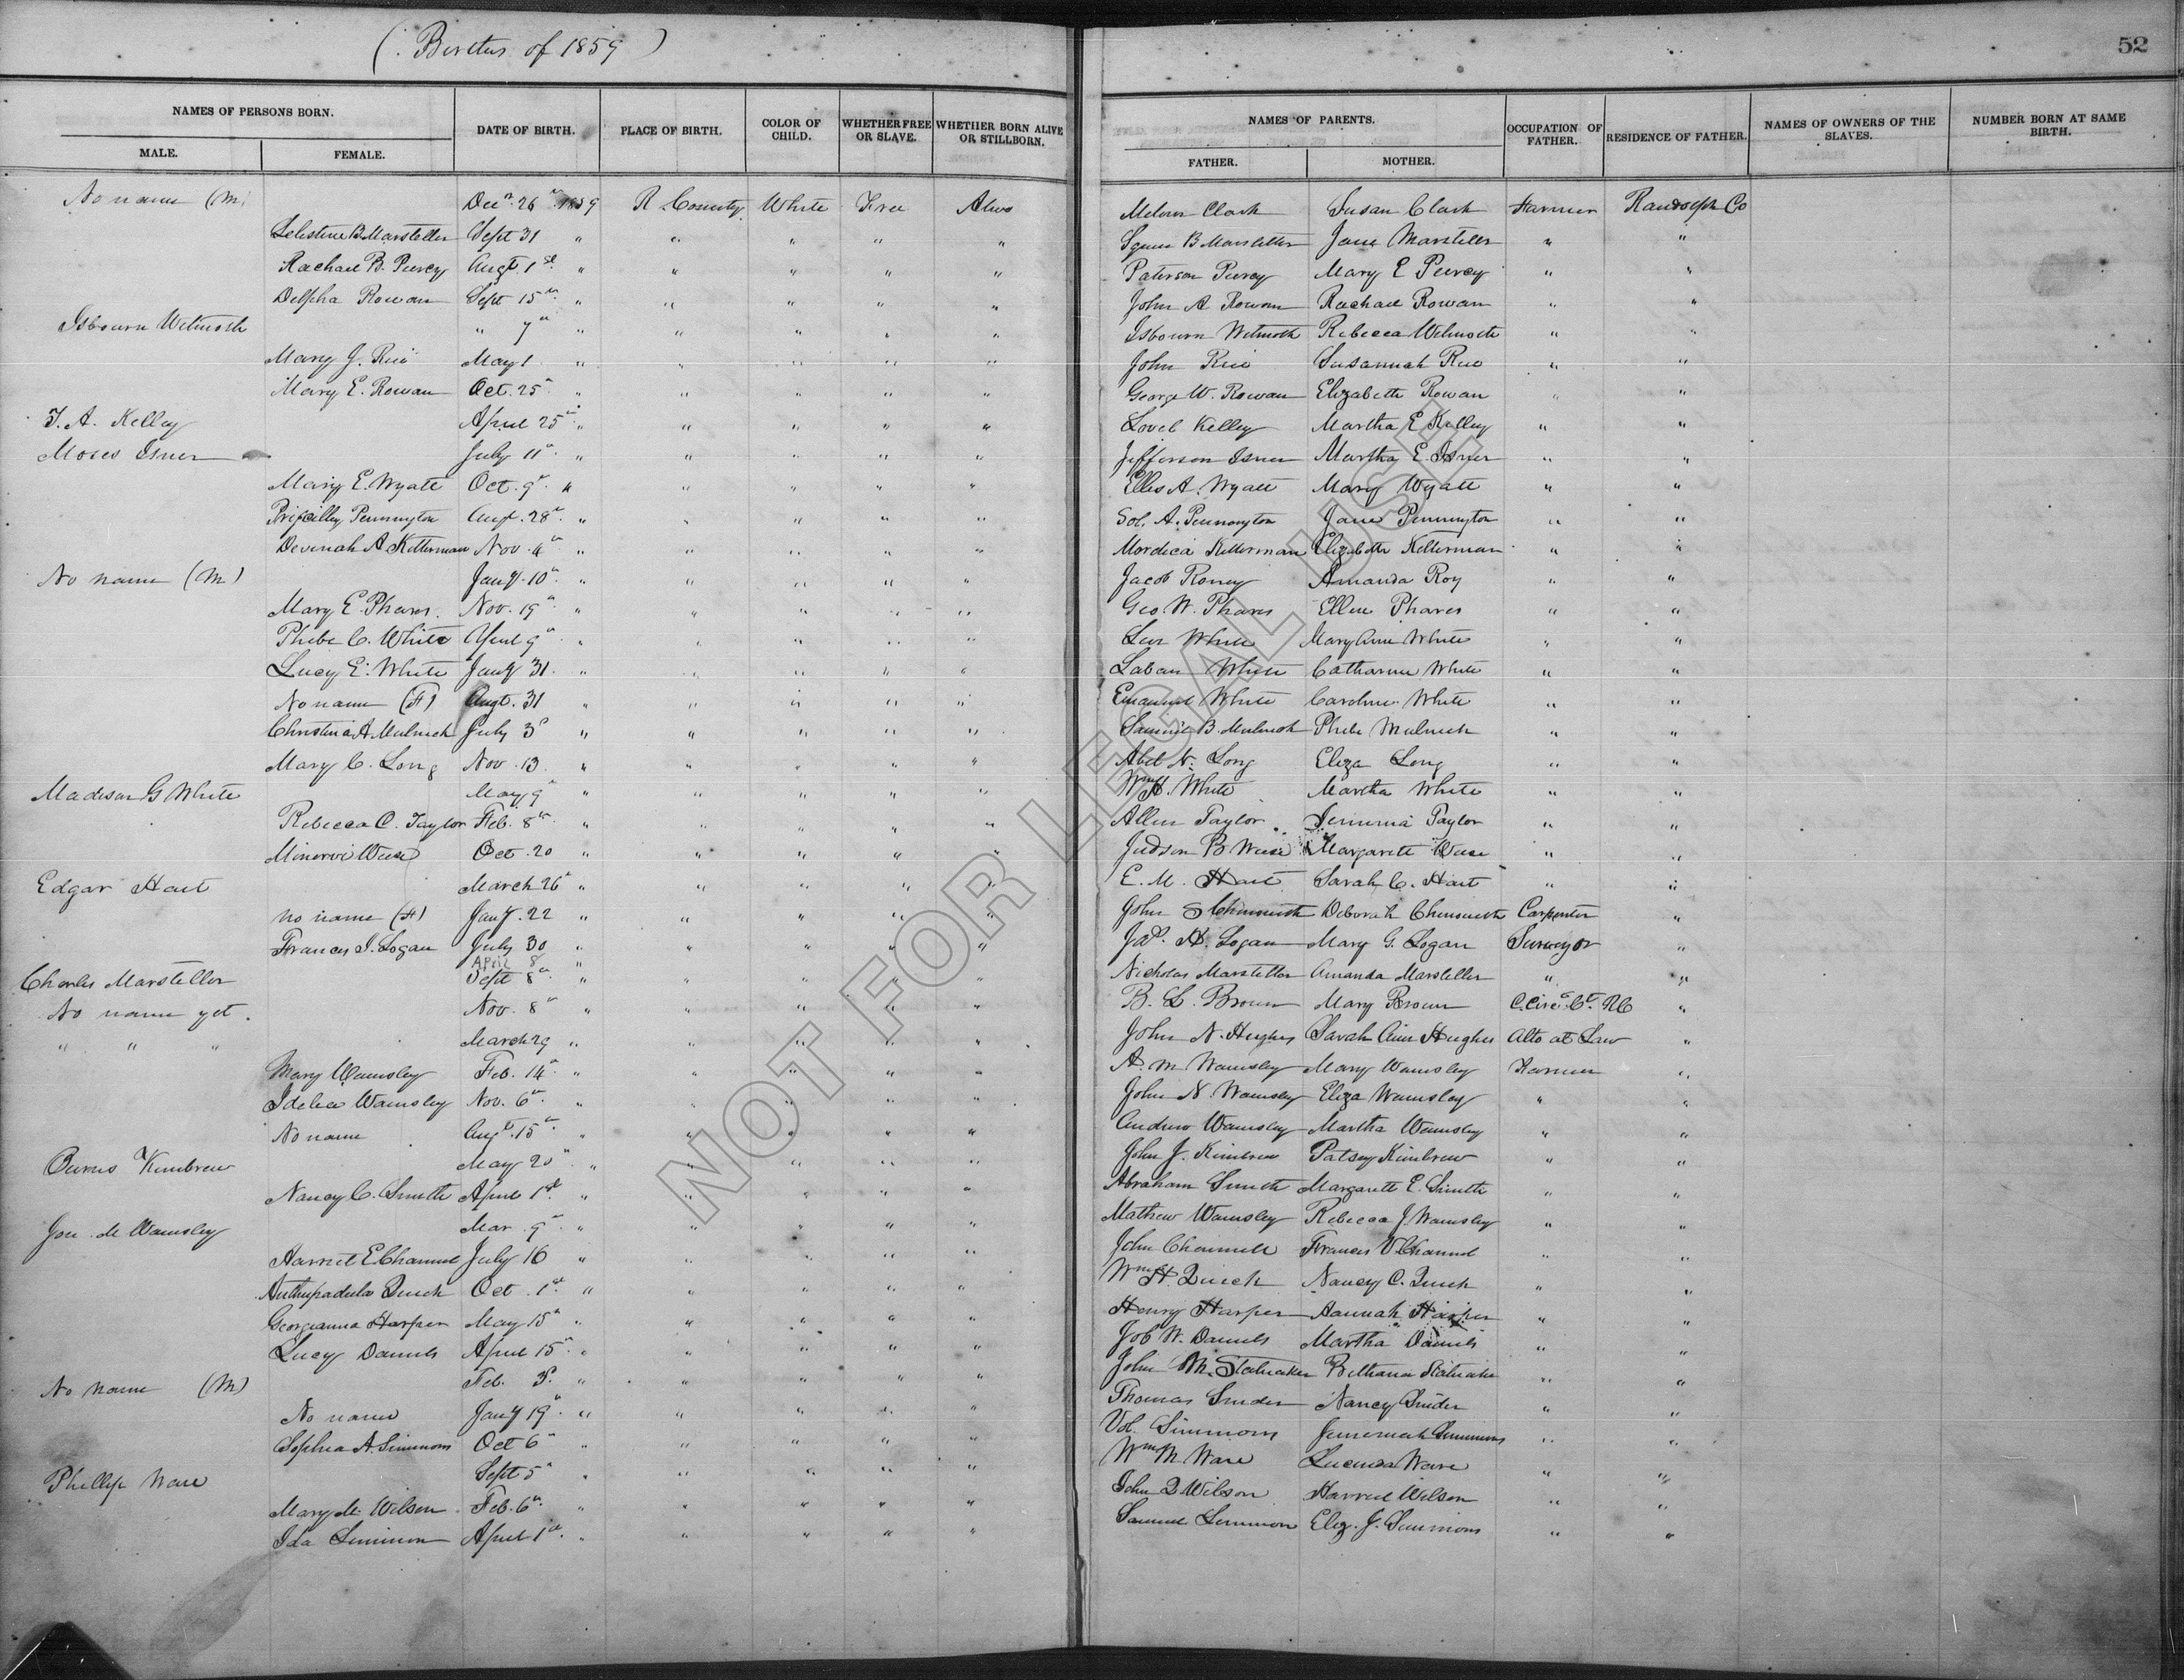 (. Births of 1859 )
52
NAMES OF PERSONS BORN. DATE OF BIRTH. PLACE OF BIRTH. COLOR OF CHILD. WHETHER FREE OR SLAVE. WHETHER BORN ALIVE OR STILLBORN. NAMES OF PARENTS. OCCUPATION OF FATHER. RESIDENCE OF FATHER. NAMES OF OWNERS OF THE SLAVES. NUMBER BORN AT SAME BIRTH.
MALE. FEMALE. FATHER. MOTHER.
No name (M) Decr. 26th 1859 R. County White Free Alive Clark Susan Clark Farmer Randolph Co
Celestine B Marsteller Sept 31 " " " " " Squire B Marsteller Jane Marsteller " "
Rachael B. Piercy Augt. 1st " " " " " Paterson Piercy Mary E Piercy " "
Delpha Rowan Sept 15th " " " " " John A Rowan Rachael Rowan " "
Isbourn Wilmoth " 7th " " " " " Isbourn Wilmoth Rebecca Wilmoth " "
Mary J. Rice May 1 " " " " " John Rice Susannah Rice " "
Mary E. Rowan Oct. 25th " " " " " George W. Rowan Elizabeth Rowan " "
T. A. Kelley April 25th " " " " " Lovel Kelley Martha E Kelley " "
Moses Isner July 11th " " " " " Jefferson Isner Martha E. Isner " "
Mary E. Wyatt Oct. 9th " " " " " Ellis A. Wyatt Mary Wyatt " "
Pennington Augt. 28th " " " " " Sol. A. Pennington Jane Pennington " "
A. Ketterman Nov. 4th " " " " " Mordica Ketterman Elizabeth Ketterman " "
No name (M) Jany. 10th " " " " " Jacob Roney Amanda Roy " "
Mary E. Phares Nov. 19th " " " " " Geo W. Phares Ellen Phares " "
Phebe C. White April 9th " " " " " White Mary Ann White " "
Lucy E. White Jany 31 " " " " " Laban White Catharine White " "
No name (F) Augt. 31 " " " " " Emanuel White Caroline White " "
Christina A July 3d " " " " " Samuel B. Phebe " "
Mary C. Long Nov. 13 " " " " " Abel N. Long Eliza Long " "
Madison G White May 9th " " " " " Wm H. White Martha White " "
Rebecca C. Taylor Feb. 8th " " " " " Allen Taylor Jemima Taylor " "
Weese Oct. 20 " " " " " Judson B. Weese Margarett Weese " "
Edgar Hart March 26th " " " " " E. M. Hart Sarah C. Hart " "
no name (F) Jany. 22 " " " " " John S Deborah Carpenter "
Frances I. Logan July 30 " " " " " Jas. H. Logan Mary G. Logan Surveyor "
April 8 "
Charles Marsteller Sept 8th " " " " " Nicholas Marsteller Amanda Marsteller " "
No name yet. Nov. 8th " " " " " B. L. Brown Mary Brown "
" " " March 29 " " " " " John N. Hughes Sarah Ann Hughes Atto at Law "
Mary Wamsley Feb. 14th " " " " " A. M Wamsley Mary Wamsley Farmer "
Idelia Wamsley Nov. 6th " " " " " John N. Wamsley Eliza Wamsley " "
No name Augt. 15th " " " " " Andrew Wamsley Martha Wamsley " "
Kimbrew May 20th " " " " " John J. Kimbrew Patsey Kimbrew " "
Nancy C. Smith April 1st " " " " " Abraham Smith Margarett E. Smith " "
M Wamsley Mar. 9th " " " " " Mathew Wamsley Rebecca J. Wamsley " "
Harriet E Channel July 16 " " " " " John Channell Frances V. Channel " "
Quick Oct. 1st " " " " " Wm H Quick Nancy C. Quick " "
Georgianna Harper May 15th " " " " " Henry Harper Hannah Harper " "
Lucy Daniels April 15th " " " " " Job W. Daniels Martha Daniels " "
No name (M) Feb. 3d. " " " " " John M. Stalnaker Bethana Stalnaker " "
No name Jany 19th " " " " " Thomas Snider Nancy Snider " "
Sophia A. Simmons Oct 6th " " " " " Vol. Simmons Jemimah Simmons " "
Phillip Ware Sept 5th " " " " " Wm M Ware Lucinda Ware " "
Mary M. Wilson Feb. 6th " " " " " John Q Wilson Harriet Wilson " "
Ida Simmon April 1st " " " " " Samuel Simmon Eliz. J. Simmons " "
NOT FOR LEGAL USE